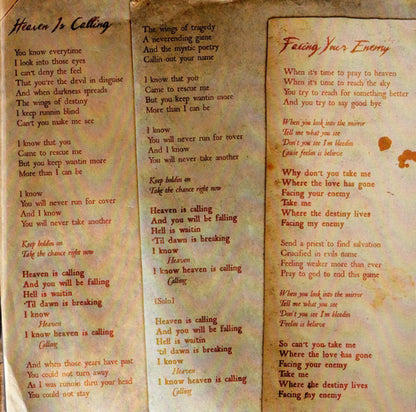 Heaven Is Calling
You know everytime
I look into those eyes
I can't deny the feel
That you're the devil in disguise
And when darkness spreads
The wings of destiny
I keep runnin blind
Can't you make me see
I know that you
Came to rescue me
But you keep wantin more
More than I can be
I know
You will never run for cover
And I know
You will never take another
Keep holden on
Take the chance right now
Heaven is calling
And you will be falling
Hell is waitin
'Til dawn is breaking
I know
Heaven
I know heaven is calling
Calling
And when those years have past
You could not turn away
As I was runnin thru your head
You could not stay
The wings of tragedy
A neverending game
And the mystic poetry
Callin out your name
I know that you
Came to rescue me
But you keep wantin more
More than I can be
I know
You will never run for cover
And I know
You will never take another
Keep holden on
Take the chance right now
Heaven is calling
And you will be falling
Hell is waitin
'Til dawn is breaking
I know
Heaven
I know heaven is calling
Calling
[Solo]
Heaven is calling
And you will be falling
Hell is waitin
'til dawn is breaking
I know
Heaven
I know heaven is calling
Calling
Facing Your Enemy
When it's time to pray to heaven
When it's time to reach the sky
You try to reach for something better
And you try to say good bye
When you look into the mirror
Tell me what you see
Don't you see I'm bleeden
Cause feelen is believe
Why don't you take me
Where the love has gone
Facing your enemy
Take me
Where the destiny lives
Facing my enemy
Send a priest to find salvation
Crucified in evils name
Feeling weaker more than ever
Pray to god to end this game
When you look into the mirror
Tell me what you see
Don't you see I'm bleeden
Feelen is believe
So can't you take me
Where the love has gone
Facing your enemy
Take me
Where the destiny lives
Facing my enemy